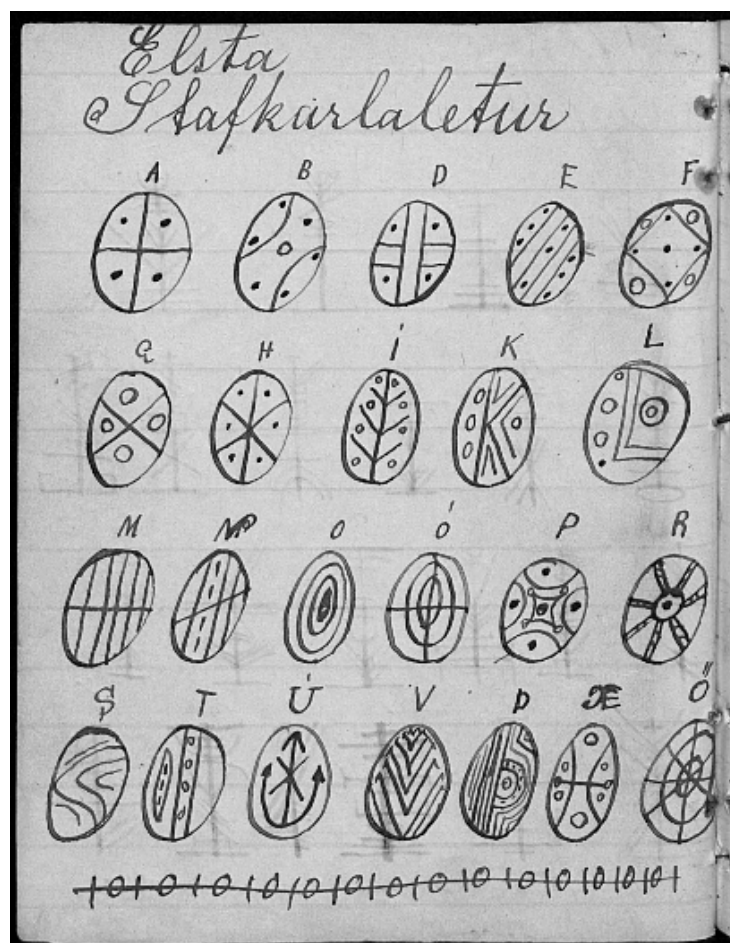 Elsta
Stafkarlaletur
A B D E F
G H Í K L
M N O Ó P R
S T Ú V Þ Æ Ö